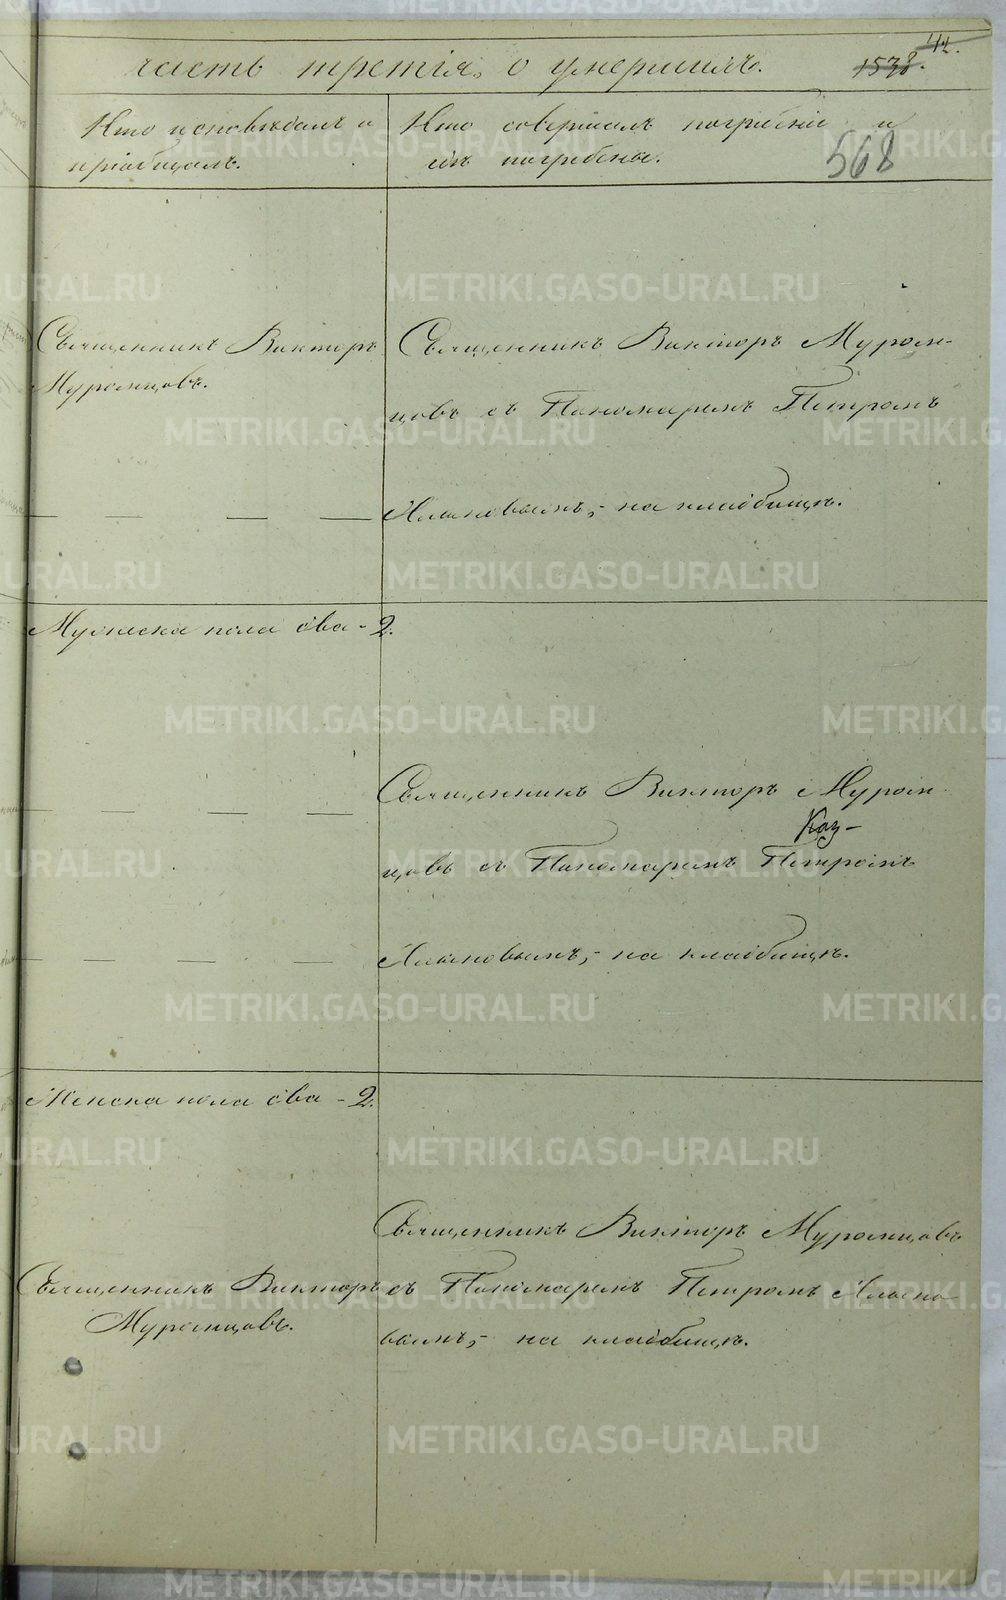 часть третія, о умершихъ.
42.
1538.
568
Кто исповѣдалъ и
пріобщалъ.
Кто совершалъ погребеніе и
гдѣ погребены.
Священникъ Викторъ
Муромцовъ.
Священникъ Викторъ Муром-
цовъ съ Пономаремъ Петромъ
на кладбищѣ.
Мужеска пола два - 2.
Священникъ Викторъ Муром
Каз-
цовъ съ Пономаремъ Петромъ
на кладбищѣ.
Женска пола два - 2.
Священникъ Викторъ
Муромцовъ.
Священникъ Викторъ Муромцовъ
съ Пономаремъ Петромъ
на кладбищѣ.
METRIKI.GASO-URAL.RU